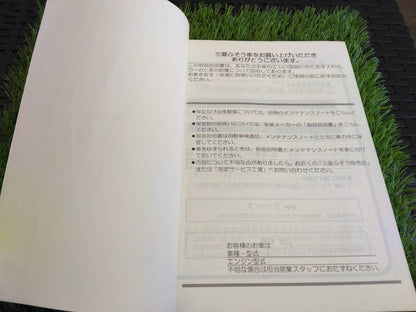 三菱ふそう車をお買い上げいただき
ありがとうございます。
この取扱説明書は、あなたのお車の正しい取扱い方とお手入れ方、
カーのときの処置について説明してあります。
お車を安全・快適にお使いいただくため、ご使用の前に必ずお読み
ください。
●保証及び点検整備については、別冊のメンテナンスノートをごらん
ください。
●架装物の取扱いについては、架装メーカーの「取扱説明書」をごらん
ください。
●取扱説明書は自動車検査証、メンテナンスノートとともに車の中に保
管してください。
●車をゆずられるときは、取扱説明書とメンテナンスノートを車に付け
ておいてください。
●内容について不明な点がありましたら、お近くの「三菱ふそう販売店」
または「指定サービス工場」へお問い合わせください。
お客様のお車は
車種・型式：
エンジン型式：
不明な場合は担当営業スタッフにおたずねください。